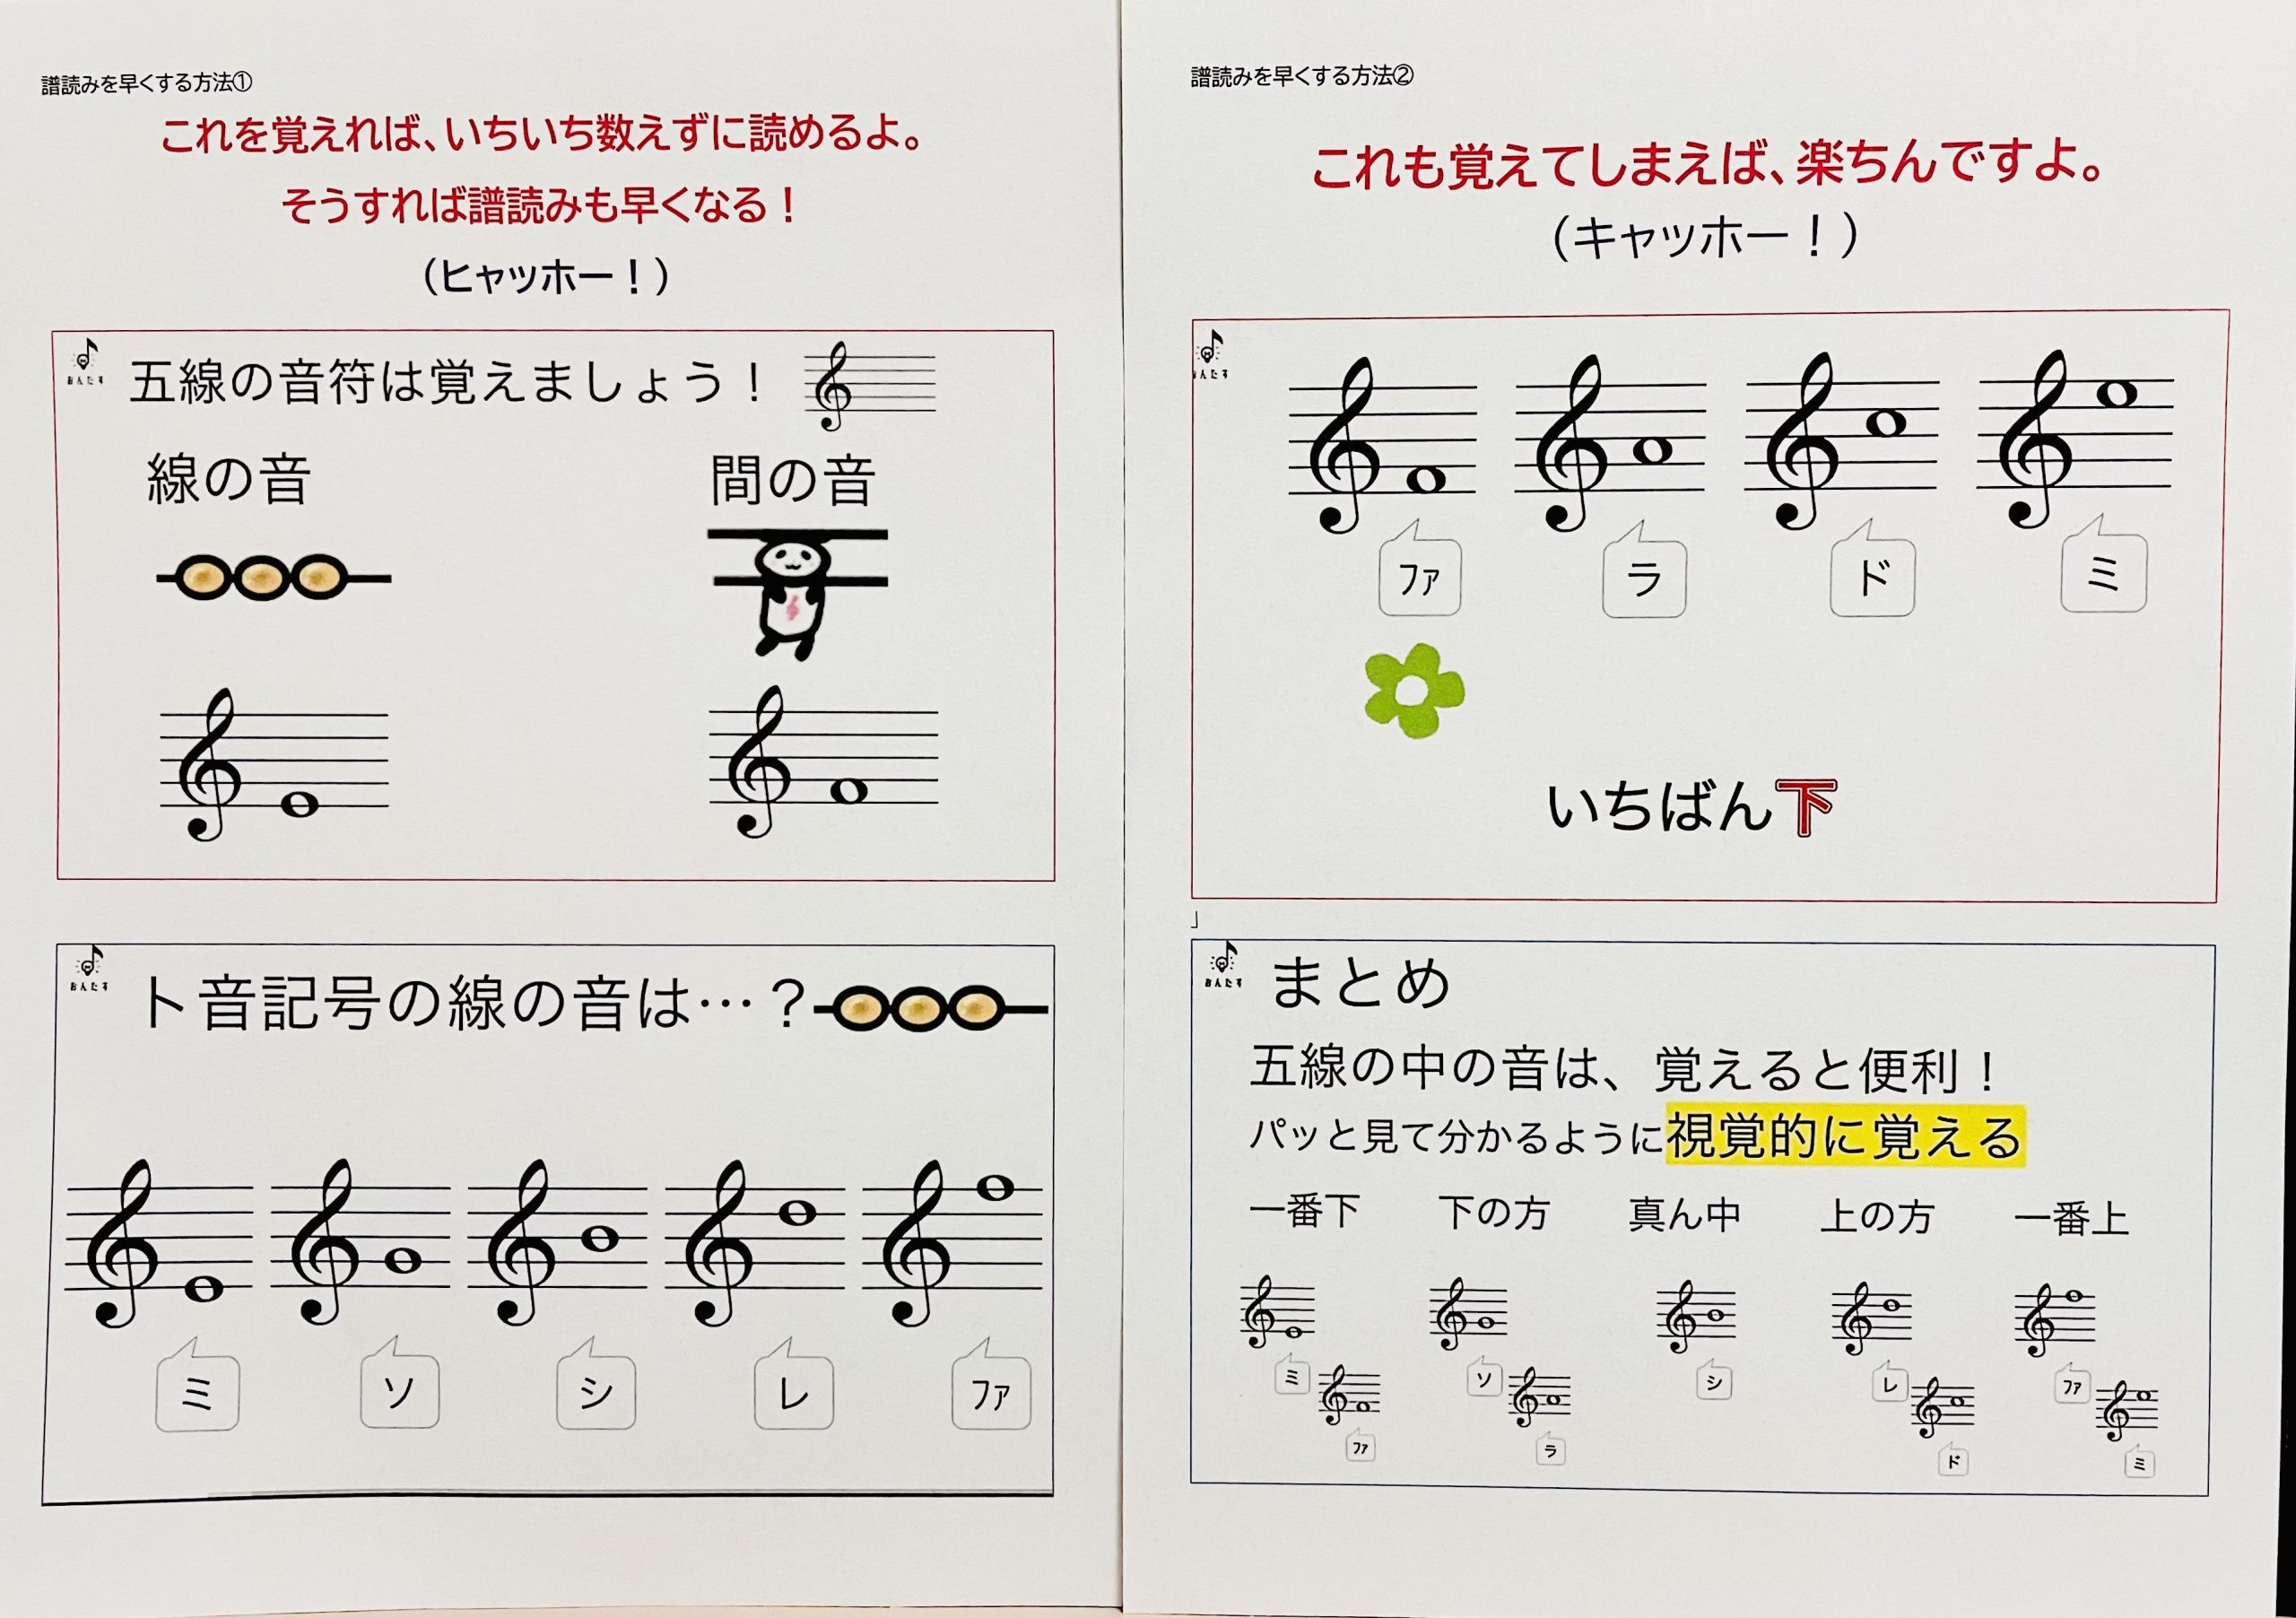 譜読みを早くする方法①
これを覚えれば、いちいち数えずに読めるよ。
そうすれば譜読みも早くなる！
（ヒャッホー！）
おんたす
五線の音符は覚えましょう！
線の音
間の音
おんたす
ト音記号の線の音は…？
ミ
ソ
シ
レ
ファ
譜読みを早くする方法②
これも覚えてしまえば、楽ちんですよ。
（キャッホー！）
おんたす
ファ
ラ
ド
ミ
いちばん下
」
おんたす
まとめ
五線の中の音は、覚えると便利！
パッと見て分かるように視覚的に覚える
一番下
下の方
真ん中
上の方
一番上
ミ
ソ
シ
レ
ファ
ファ
ラ
ド
ミ